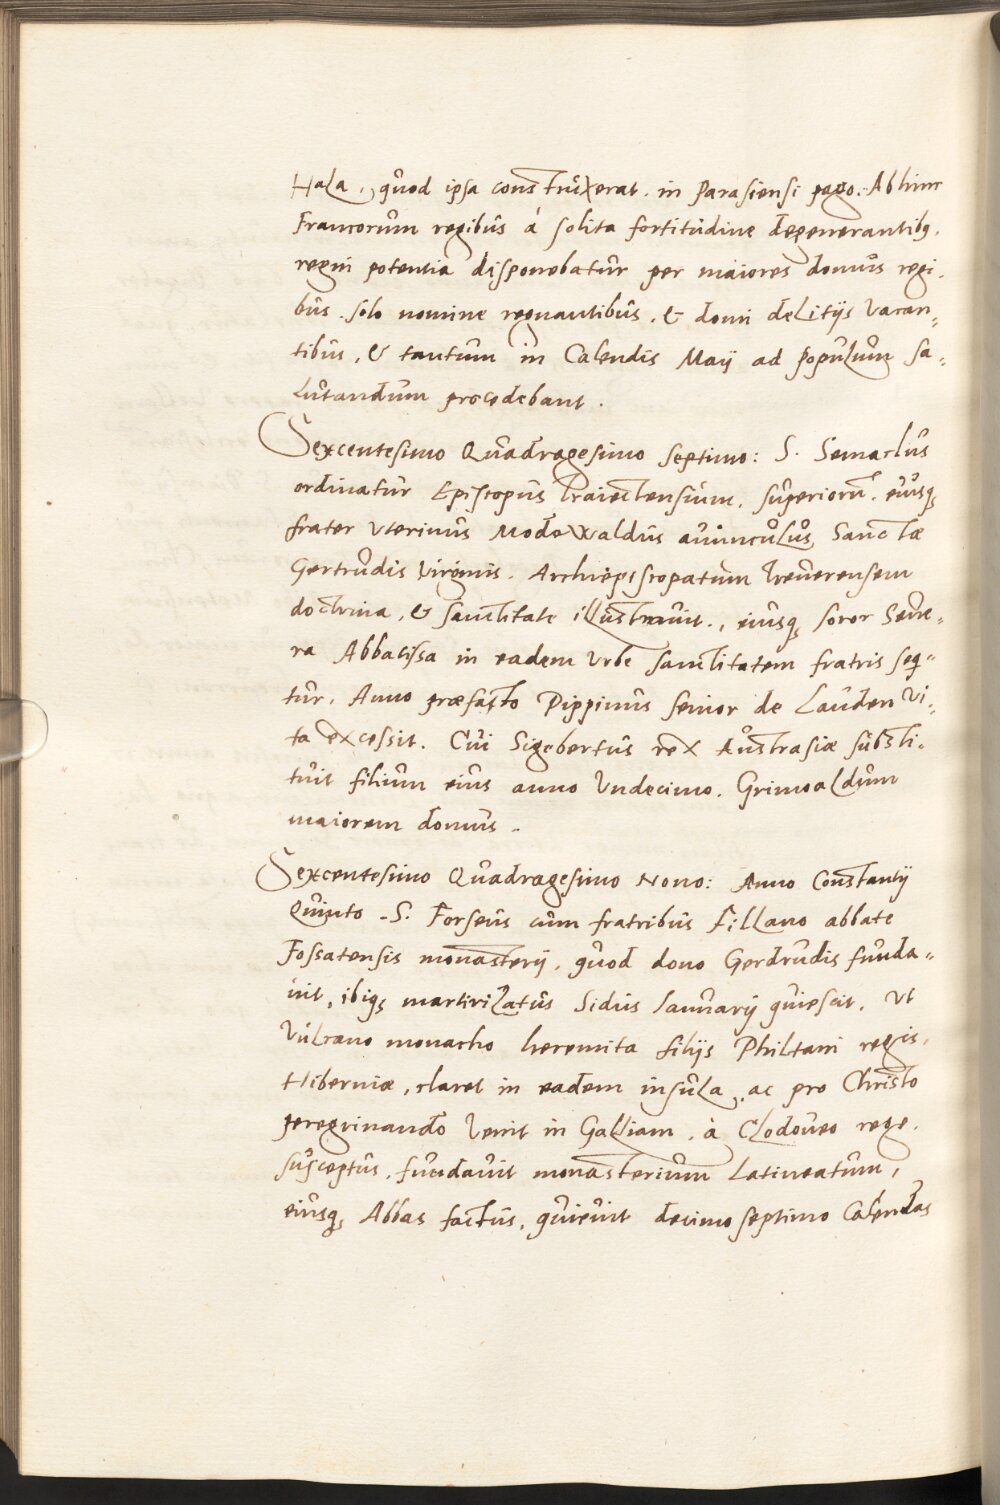 Hala, quod ipsa construxerat. in Parasiensi pago. Abhinc
Francorum regibus á solita fortitudine degenerantibq,
regni potentia disponebatur per maiores domus regi,
bus. solo nomine regnantibus, & domi delitijs vacan=
tibus, & tantum in Calendis Maij ad populum sa=
lutandum procedebant.
Sexcentesimo Quadragesimo septimo: S. Semaclus
ordinatur Episcopus Traiectensium, superiorũ, eiusq,
frater vterinus Modowaldus auunculus Sanctæ
Gertrudis virginis. Archiepiscopatum Treuerensem
doctrina, & sanctitate illustrauit., eiusq, soror Seue=
ra Abbatissa in eadem vrbe sanctitatem fratris seq=
tur. Anno præfacto Pippinus senior de Lauden vi=
ta excessit. Cui Sigebertus rex Austrasiæ substi=
tuit filium eius anno vndecimo. Grimoaldum
maiorem domus.
Sexcentesimo Quadragesimo Nono: Anno Constantij
Quinto. S. Forseus cum fratribus Fillano abbate
Fossatensis monasterij, quod dono Gerdrudis funda=
uit, ibiq, martirizatus Sidus Januarij quiescit. Vt
Vulrano monacho heremita filijs Philtani regis,
Hiberniæ, claret in eadem insula, ac pro Christo
peregrinando venit in Galliam, à Clodoueo rege,
susceptus, fundauit monasterium Latineatum,
eiusq, Abbas factus, quieuit decimo septimo Calendas